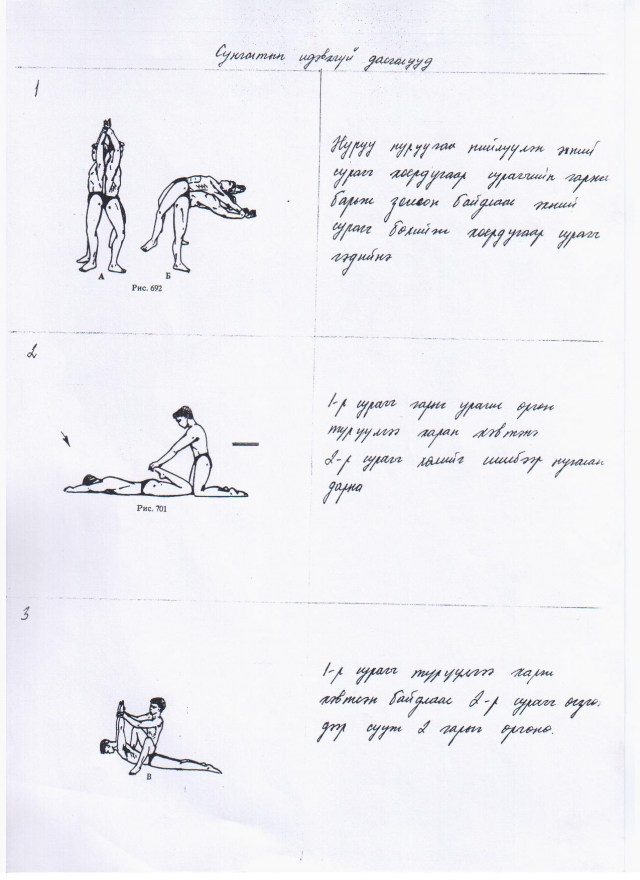 Сунгалтын идэвхгүй дасгалууд
1
А
Б
Рис. 692
Нуруу нуруугаа нийлүүлэн эхний
сурагч хоёрдугаар сурагчийн гарнаас
барьж зогссон байдлаас эхний
сурагч бөхийж хоёрдугаар сурагч
гэдийнэ
2
Рис. 701
1-р сурагч гарыг урагш өргөн
түрүүлгээ харан хэвтэнэ
2-р сурагч хөлийг шилбээр нугалан
дарна
3
В
1-р сурагч түрүүлгээ харж
хэвтсэн байдлаас 2-р сурагч
дээр сууж 2 гарыг өргөнө.